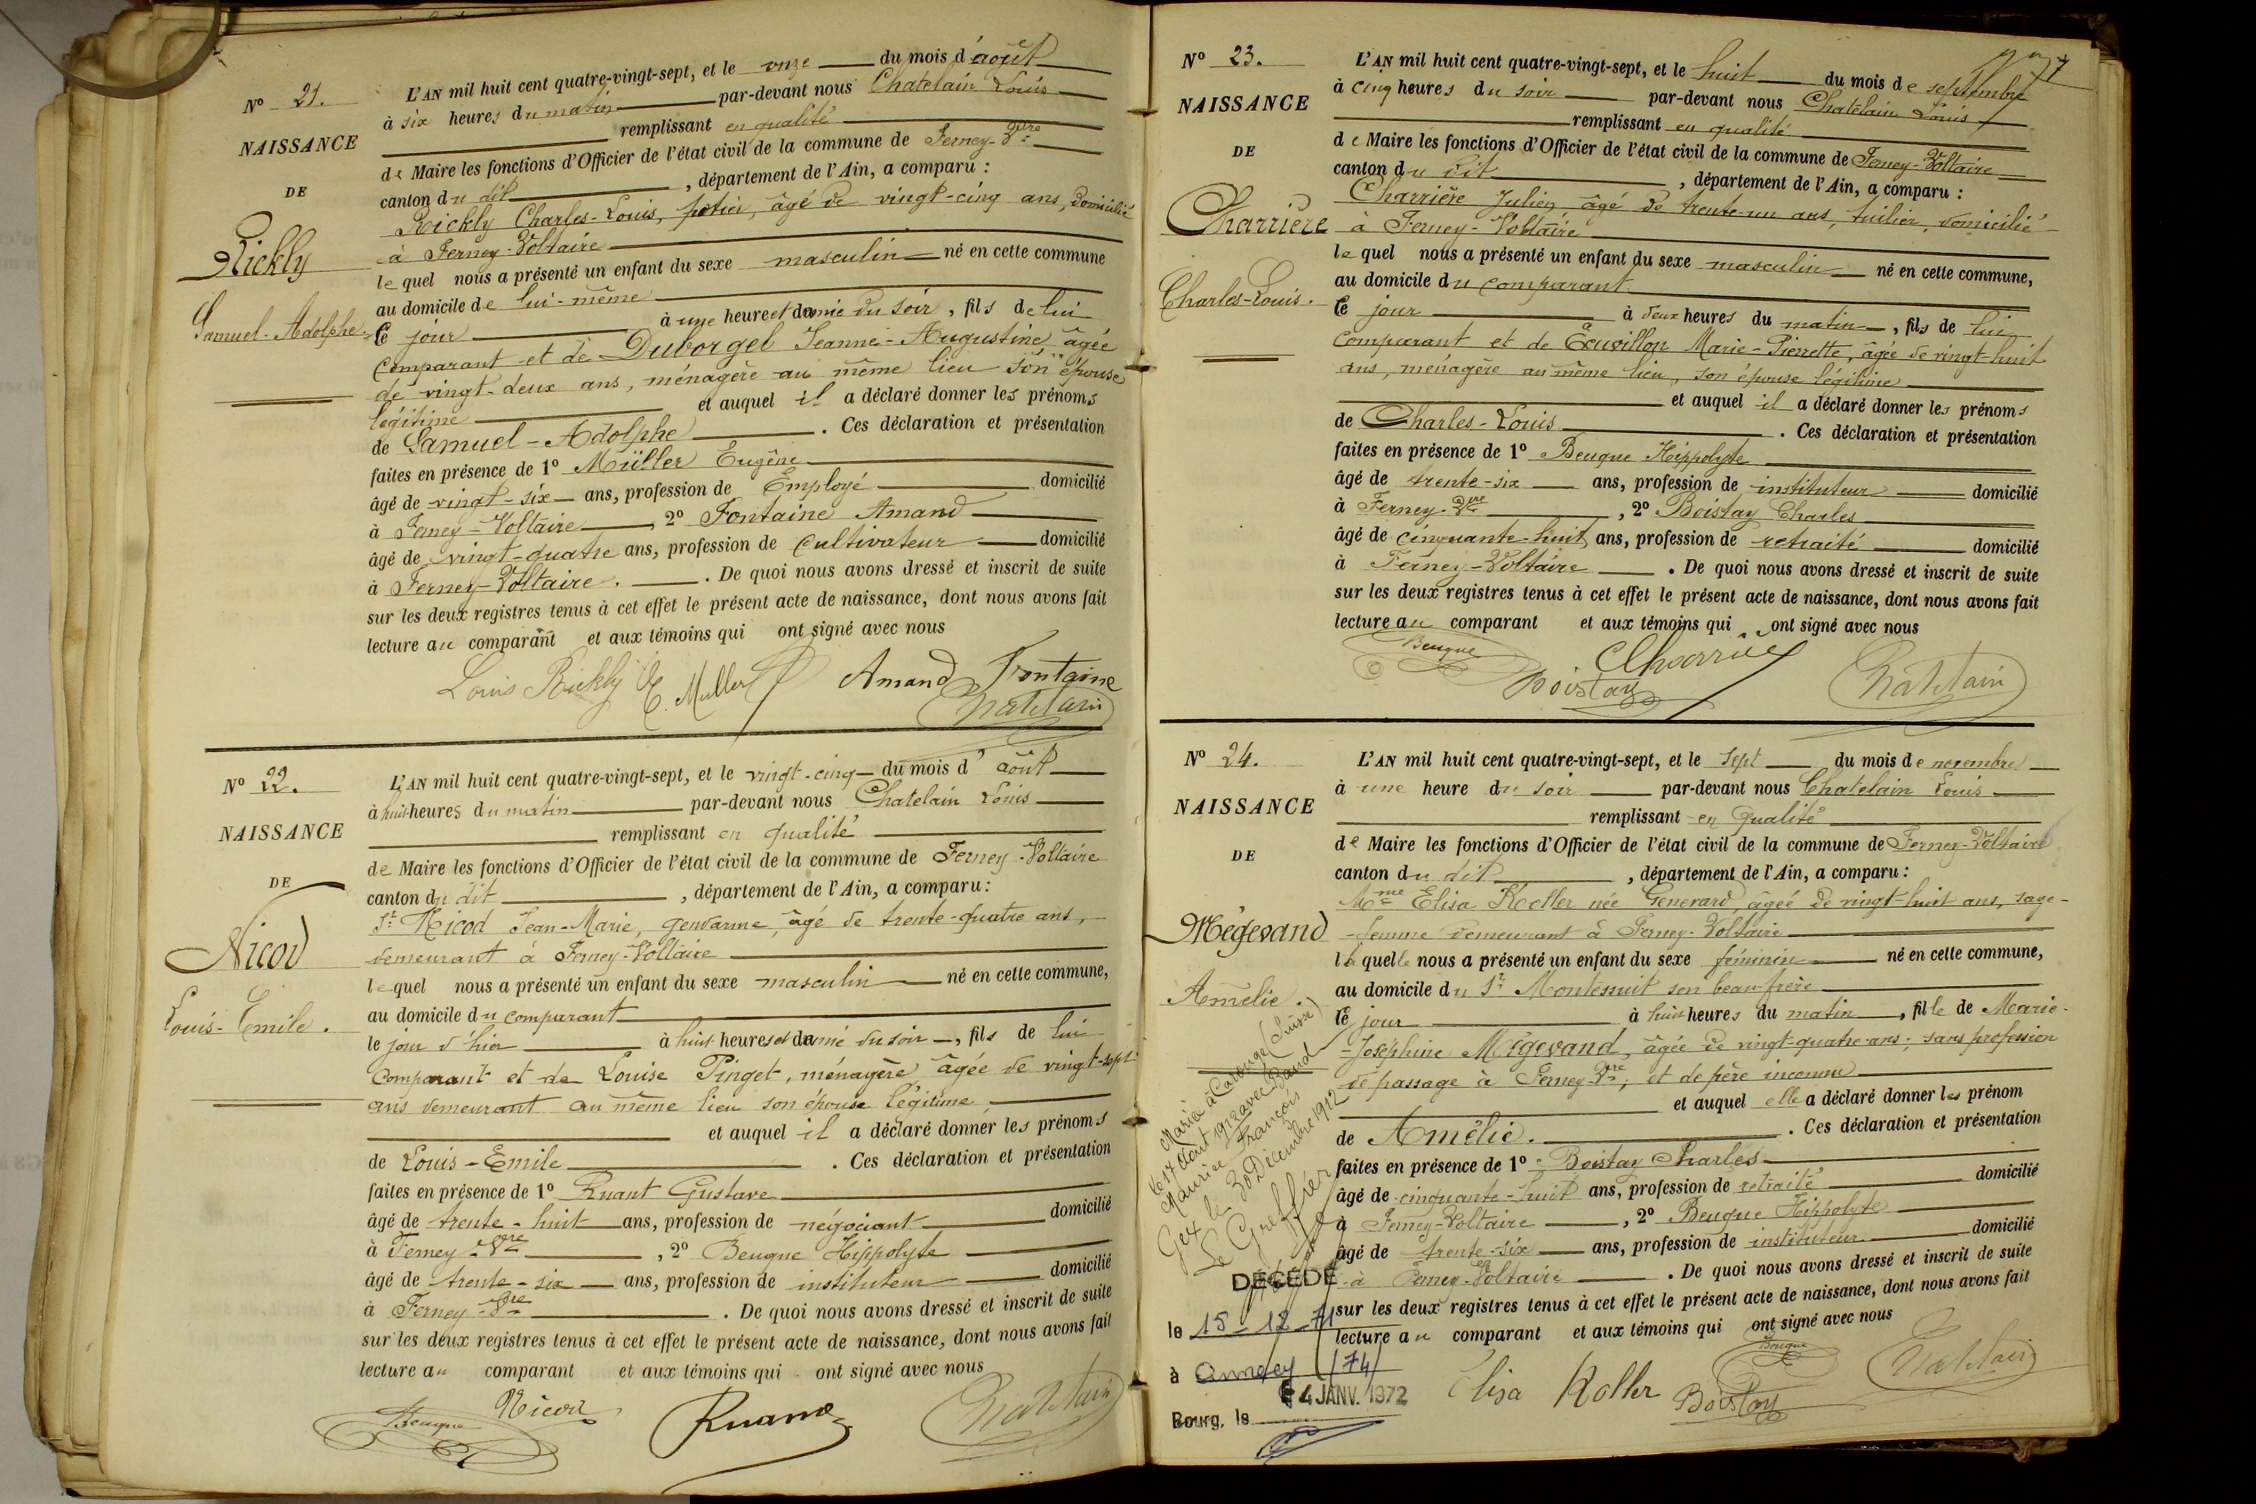 N° 21.
NAISSANCE
DE
Rickly
Samuel-Adolphe
L'AN mil huit cent quatre-vingt-sept, et le onze du mois d'août
à six heures du matin par-devant nous Chatelain Louis
remplissant en qualité
de Maire les fonctions d'Officier de l'état civil de la commune de Ferney-Vre
canton du dit, département de l'Ain, a comparu :
Rickly Charles-Louis, potier, âgé de vingt-cinq ans, domicilié
à Ferney-Voltaire
lequel nous a présenté un enfant du sexe masculin né en cette commune
au domicile de lui-même
ce jour à une heure et demie du soir, fils de lui
comparant et de Duborgel Jeanne-Augustine âgée
de vingt-deux ans, ménagère au même lieu son épouse
légitime et auquel il a déclaré donner les prénoms
de Samuel-Adolphe. Ces déclaration et présentation
faites en présence de 1° Müller Eugène
âgé de vingt-six ans, profession de Employé domicilié
à Ferney-Voltaire, 2° Fontaine Amand
âgé de vingt-quatre ans, profession de cultivateur domicilié
à Ferney-Voltaire. De quoi nous avons dressé et inscrit de suite
sur les deux registres tenus à cet effet le présent acte de naissance, dont nous avons fait
lecture au comparant et aux témoins qui ont signé avec nous
Louis Rickly E. Muller Amand Fontaine
Chatelain
N° 22.
NAISSANCE
DE
Nicod
Louis-Emile.
L'AN mil huit cent quatre-vingt-sept, et le vingt-cinq du mois d'août
à huit heures du matin par-devant nous Chatelain Louis
remplissant en qualité
de Maire les fonctions d'Officier de l'état civil de la commune de Ferney-Voltaire
canton du dit, département de l'Ain, a comparu :
Sr Nicod Jean-Marie, gendarme, âgé de trente-quatre ans,
demeurant à Ferney-Voltaire
lequel nous a présenté un enfant du sexe masculin né en cette commune,
au domicile du comparant
le jour d'hier à huit heures et demie du soir, fils de lui
comparant et de Louise Pinget, ménagère âgée de vingt-sept
ans demeurant au même lieu son épouse légitime,
et auquel il a déclaré donner les prénoms
de Louis-Emile. Ces déclaration et présentation
faites en présence de 1° Ruant Gustave
âgé de trente-huit ans, profession de négociant domicilié
à Ferney-Vre, 2° Beugne Hippolyte
âgé de trente-six ans, profession de instituteur domicilié
à Ferney-Vre. De quoi nous avons dressé et inscrit de suite
sur les deux registres tenus à cet effet le présent acte de naissance, dont nous avons fait
lecture au comparant et aux témoins qui ont signé avec nous
Beugne Nicod Ruant Chatelain
N° 23.
NAISSANCE
DE
Charrière
Charles-Louis.
7
L'AN mil huit cent quatre-vingt-sept, et le huit du mois de septembre
à cinq heures du soir par-devant nous Chatelain Louis
remplissant en qualité
de Maire les fonctions d'Officier de l'état civil de la commune de Ferney-Voltaire
canton du dit, département de l'Ain, a comparu :
Charrière Julien âgé de trente-un ans, tuilier, domicilié
à Ferney-Voltaire
lequel nous a présenté un enfant du sexe masculin né en cette commune,
au domicile du comparant
ce jour à deux heures du matin, fils de lui
comparant et de Marie-Pierrette, âgée de vingt-huit
ans, ménagère au même lieu, son épouse légitime
et auquel il a déclaré donner les prénoms
de Charles-Louis. Ces déclaration et présentation
faites en présence de 1° Beugne Hippolyte
âgé de trente-six ans, profession de instituteur domicilié
à Ferney-Vre, 2° Boistay Charles
âgé de cinquante-huit ans, profession de retraité domicilié
à Ferney-Voltaire. De quoi nous avons dressé et inscrit de suite
sur les deux registres tenus à cet effet le présent acte de naissance, dont nous avons fait
lecture au comparant et aux témoins qui ont signé avec nous
Beugne Boistay Charrière Chatelain
N° 24.
NAISSANCE
DE
Mégevand
Amélie.
Mariée à Carouge (Suisse)
le 17 Août 1912 avec Baud
Maurice François
Gex le 30 Décembre 1912
Le Greffier
DÉCÉDÉ
le 15-12-71
à Annecy (74)
Bourg, le 4 JANV. 1972
L'AN mil huit cent quatre-vingt-sept, et le sept du mois de novembre
à une heure du soir par-devant nous Chatelain Louis
remplissant en qualité
de Maire les fonctions d'Officier de l'état civil de la commune de Ferney-Voltaire
canton du dit, département de l'Ain, a comparu :
Mme Elisa Koller née Generard, âgée de vingt-huit ans, sage-
-femme demeurant à Ferney-Voltaire
laquelle nous a présenté un enfant du sexe féminin né en cette commune,
au domicile du Sr Montessuit son beau-frère
ce jour à huit heures du matin, fille de Marie-
-Joséphine Mégevand, âgée de vingt-quatre ans, sans profession
de passage à Ferney-Vre, et de père inconnu
et auquel elle a déclaré donner les prénom
de Amélie. Ces déclaration et présentation
faites en présence de 1° Boistay Charles
âgé de cinquante-huit ans, profession de retraité domicilié
à Ferney-Voltaire, 2° Beugne Hippolyte
âgé de trente-six ans, profession de instituteur domicilié
à Ferney-Voltaire. De quoi nous avons dressé et inscrit de suite
sur les deux registres tenus à cet effet le présent acte de naissance, dont nous avons fait
lecture au comparant et aux témoins qui ont signé avec nous
Elisa Koller Boistay Beugne Chatelain